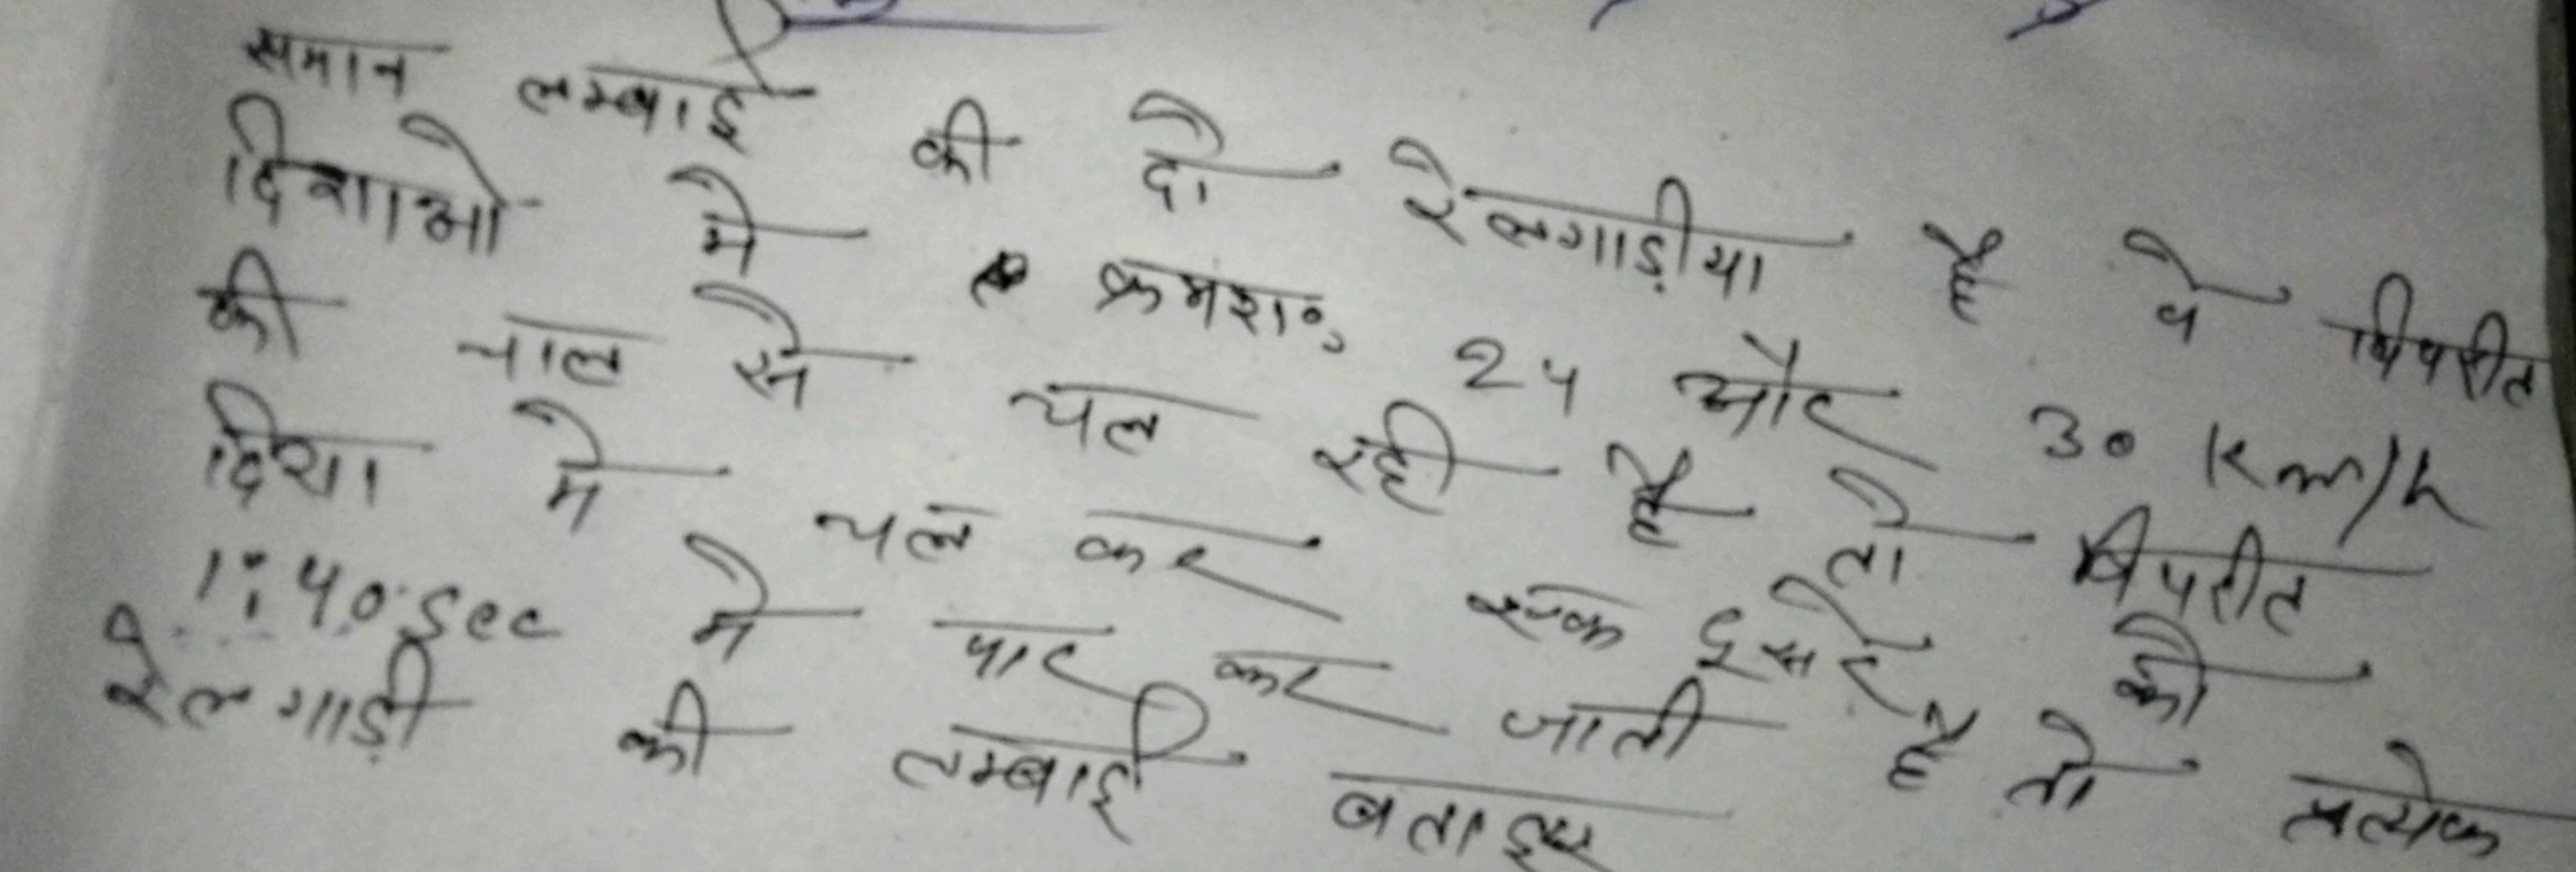 समान लम्बाई की दो रेलगाड़ीया है वे विपरीत
दिशाओ मे क्रमशः 24 और 30 km/h
की चाल से चल रही है तो विपरीत
दिशा मे चल कर एक दुसरे को
1:40 sec मे पार कर जाती है तो प्रत्येक
रेलगाड़ी की लम्बाई बताइए